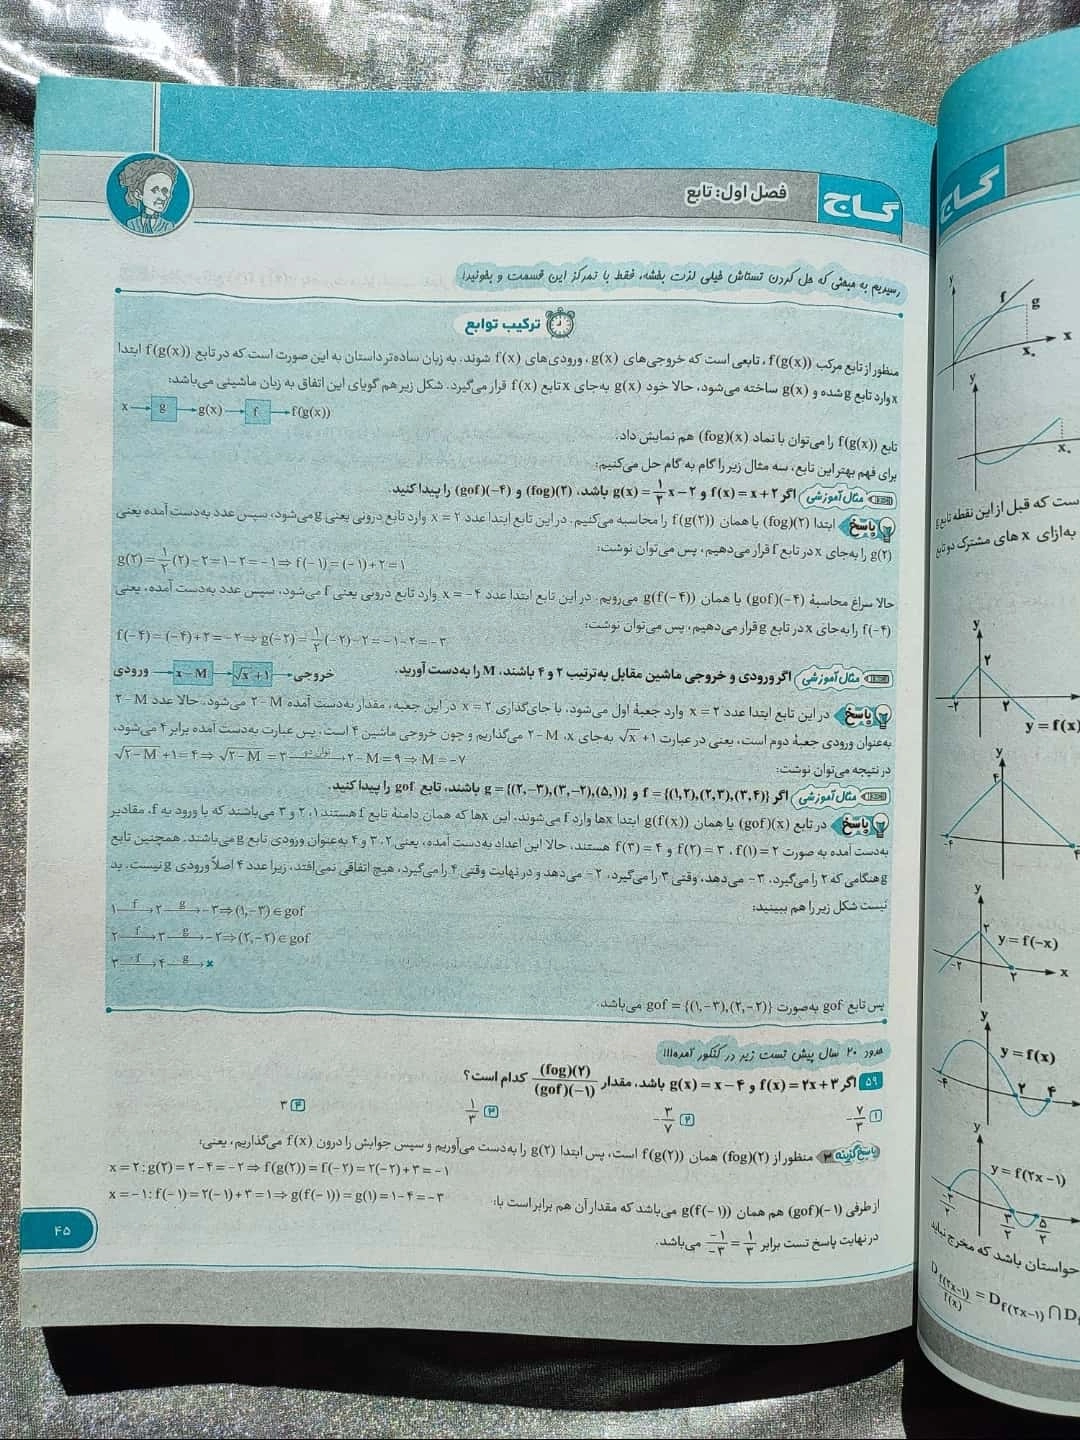 گاج
فصل اول: تابع
رسیدیم به مبحثی که حل کردن تستاش خیلی لذت بخشه، فقط با تمرکز این قسمت و بخونید!
ترکیب توابع
منظور از تابع مرکب f(g(x))، تابعی است که خروجی‌های g(x)، ورودی‌های f(x) شوند. به زبان ساده‌تر داستان به این صورت است که در تابع f(g(x)) ابتدا
x وارد تابع g شده و g(x) ساخته می‌شود، حالا خود g(x) به‌جای x تابع f(x) قرار می‌گیرد. شکل زیر هم گویای این اتفاق به زبان ماشینی می‌باشد:
x → g → g(x) → f → f(g(x))
تابع f(g(x)) را می‌توان با نماد (fog)(x) هم نمایش داد.
برای فهم بهتر این تابع، سه مثال زیر را گام به گام حل می‌کنیم:
مثال آموزشی اگر f(x) = x + ۲ و g(x) = ۱/۲ x − ۲ باشد، (fog)(۲) و (gof)(−۴) را پیدا کنید.
پاسخ ابتدا (fog)(۲) یا همان f(g(۲)) را محاسبه می‌کنیم. در این تابع ابتدا عدد x = ۲ وارد تابع درونی یعنی g می‌شود، سپس عدد به‌دست آمده یعنی
g(۲) را به‌جای x در تابع f قرار می‌دهیم، پس می‌توان نوشت:
g(۲) = ۱/۲ (۲) − ۲ = ۱ − ۲ = −۱ ⇒ f(−۱) = (−۱) + ۲ = ۱
حالا سراغ محاسبهٔ (gof)(−۴) یا همان g(f(−۴)) می‌رویم. در این تابع ابتدا عدد x = −۴ وارد تابع درونی یعنی f می‌شود، سپس عدد به‌دست آمده، یعنی
f(−۴) را به‌جای x در تابع g قرار می‌دهیم، پس می‌توان نوشت:
f(−۴) = (−۴) + ۲ = −۲ ⇒ g(−۲) = ۱/۲ (−۲) − ۲ = −۱ − ۲ = −۳
مثال آموزشی اگر ورودی و خروجی ماشین مقابل به‌ترتیب ۲ و ۴ باشند، M را به‌دست آورید.
ورودی → x − M → √x + ۱ → خروجی
پاسخ در این تابع ابتدا عدد x = ۲ وارد جعبهٔ اول می‌شود، با جای‌گذاری x = ۲ در این جعبه، مقدار به‌دست آمده ۲ − M می‌شود. حالا عدد ۲ − M
به‌عنوان ورودی جعبهٔ دوم است، یعنی در عبارت √x + ۱ به‌جای x، ۲ − M می‌گذاریم و چون خروجی ماشین ۴ است، پس عبارت به‌دست آمده برابر ۴ می‌شود،
در نتیجه می‌توان نوشت:
√۲−M + ۱ = ۴ ⇒ √۲−M = ۳ توان دو → ۲ − M = ۹ ⇒ M = −۷
مثال آموزشی اگر f = {(۱,۲),(۲,۳),(۳,۴)} و g = {(۲,−۳),(۳,−۲),(۵,۱)} باشند، تابع gof را پیدا کنید.
پاسخ در تابع (gof)(x) یا همان g(f(x)) ابتدا xها وارد f می‌شوند، این xها که همان دامنهٔ تابع f هستند ۱، ۲ و ۳ می‌باشند که با ورود به f، مقادیر
به‌دست آمده به صورت f(۱) = ۲، f(۲) = ۳ و f(۳) = ۴ هستند. حالا این اعداد به‌دست آمده، یعنی ۲، ۳ و ۴ به‌عنوان ورودی تابع g می‌باشند. همچنین تابع
g هنگامی که ۲ را می‌گیرد، ۳− می‌دهد، وقتی ۳ را می‌گیرد، ۲− می‌دهد و در نهایت وقتی ۴ را می‌گیرد، هیچ اتفاقی نمی‌افتد، زیرا عدد ۴ اصلاً ورودی g نیست. بد
نیست شکل زیر را هم ببینید:
۱ f→ ۲ g→ −۳ ⇒ (۱,−۳) ∈ gof
۲ f→ ۳ g→ −۲ ⇒ (۲,−۲) ∈ gof
۳ f→ ۴ g→ ×
پس تابع gof به‌صورت gof = {(۱,−۳),(۲,−۲)} می‌باشد.
حدود ۲۰ سال پیش تست زیر در کنکور آمده!!!
۵۹ اگر f(x) = ۲x + ۳ و g(x) = x − ۴ باشد، مقدار (fog)(۲)/(gof)(−۱) کدام است؟
۱ −۷/۳ ۲ −۳/۷ ۳ ۱/۳ ۴ ۳
پاسخ گزینه ۳ منظور از (fog)(۲) همان f(g(۲)) است، پس ابتدا g(۲) را به‌دست می‌آوریم و سپس جوابش را درون f(x) می‌گذاریم، یعنی:
x = ۲: g(۲) = ۲ − ۴ = −۲ ⇒ f(g(۲)) = f(−۲) = ۲(−۲) + ۳ = −۱
از طرفی (gof)(−۱) هم همان g(f(−۱)) می‌باشد که مقدار آن هم برابر است با:
x = −۱: f(−۱) = ۲(−۱) + ۳ = ۱ ⇒ g(f(−۱)) = g(۱) = ۱ − ۴ = −۳
در نهایت پاسخ تست برابر −۱/−۳ = ۱/۳ می‌باشد.
۴۵
گاج
y f g x x۰
y x۰
است که قبل از این نقطه تابع g
به‌ازای x های مشترک دو تابع
y ۲ −۲ ۲ y = f(x)
y ۴ −۴ ۴
y ۲ y = f(−x) −۲ ۲ x
y y = f(x) −۴ ۲ ۴
y y = f(۲x−۱) −۳/۲ ۳/۲ ۵/۲
حواستان باشد که مخرج نباید
D f(۲x−۱)/f(x) = D f(۲x−۱) ∩ D